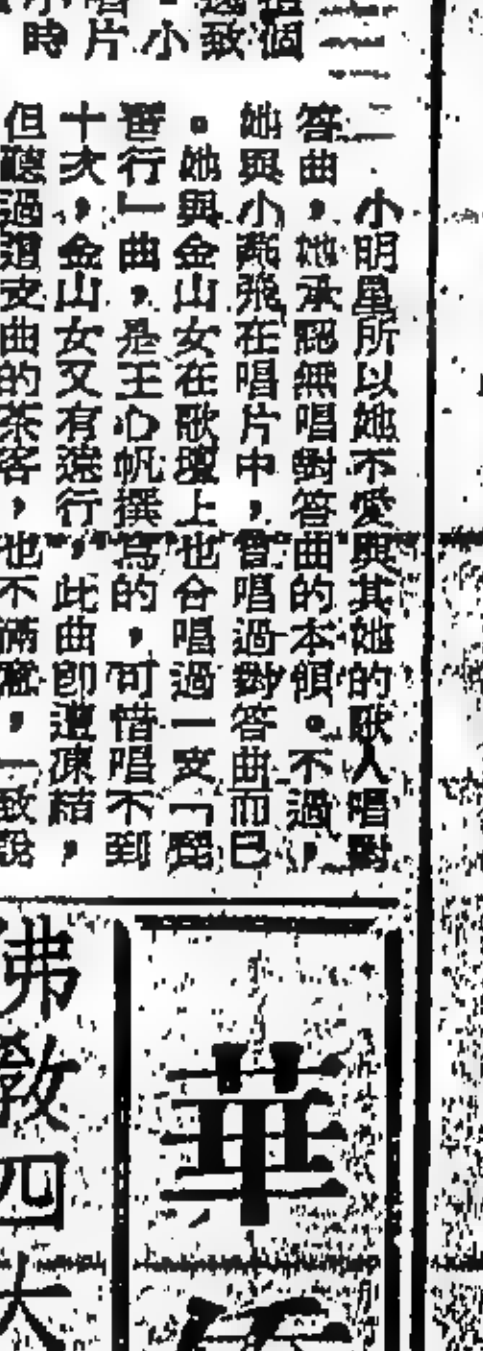 個
小致
唱片
小時
小明星所以她不愛與其她的歌人唱對
答曲，她承認無唱對答曲的本領。不過，
她與小燕飛在唱片中，曾唱過對答曲而已
。她與金山女在歌壇上也合唱過一支「
行」曲，是王心帆撰寫的，可惜唱不到
十次，金山女又有遠行，此曲即遭凍結，
但聽過這支曲的茶客，也不滿意，一致說
華
佛教四大